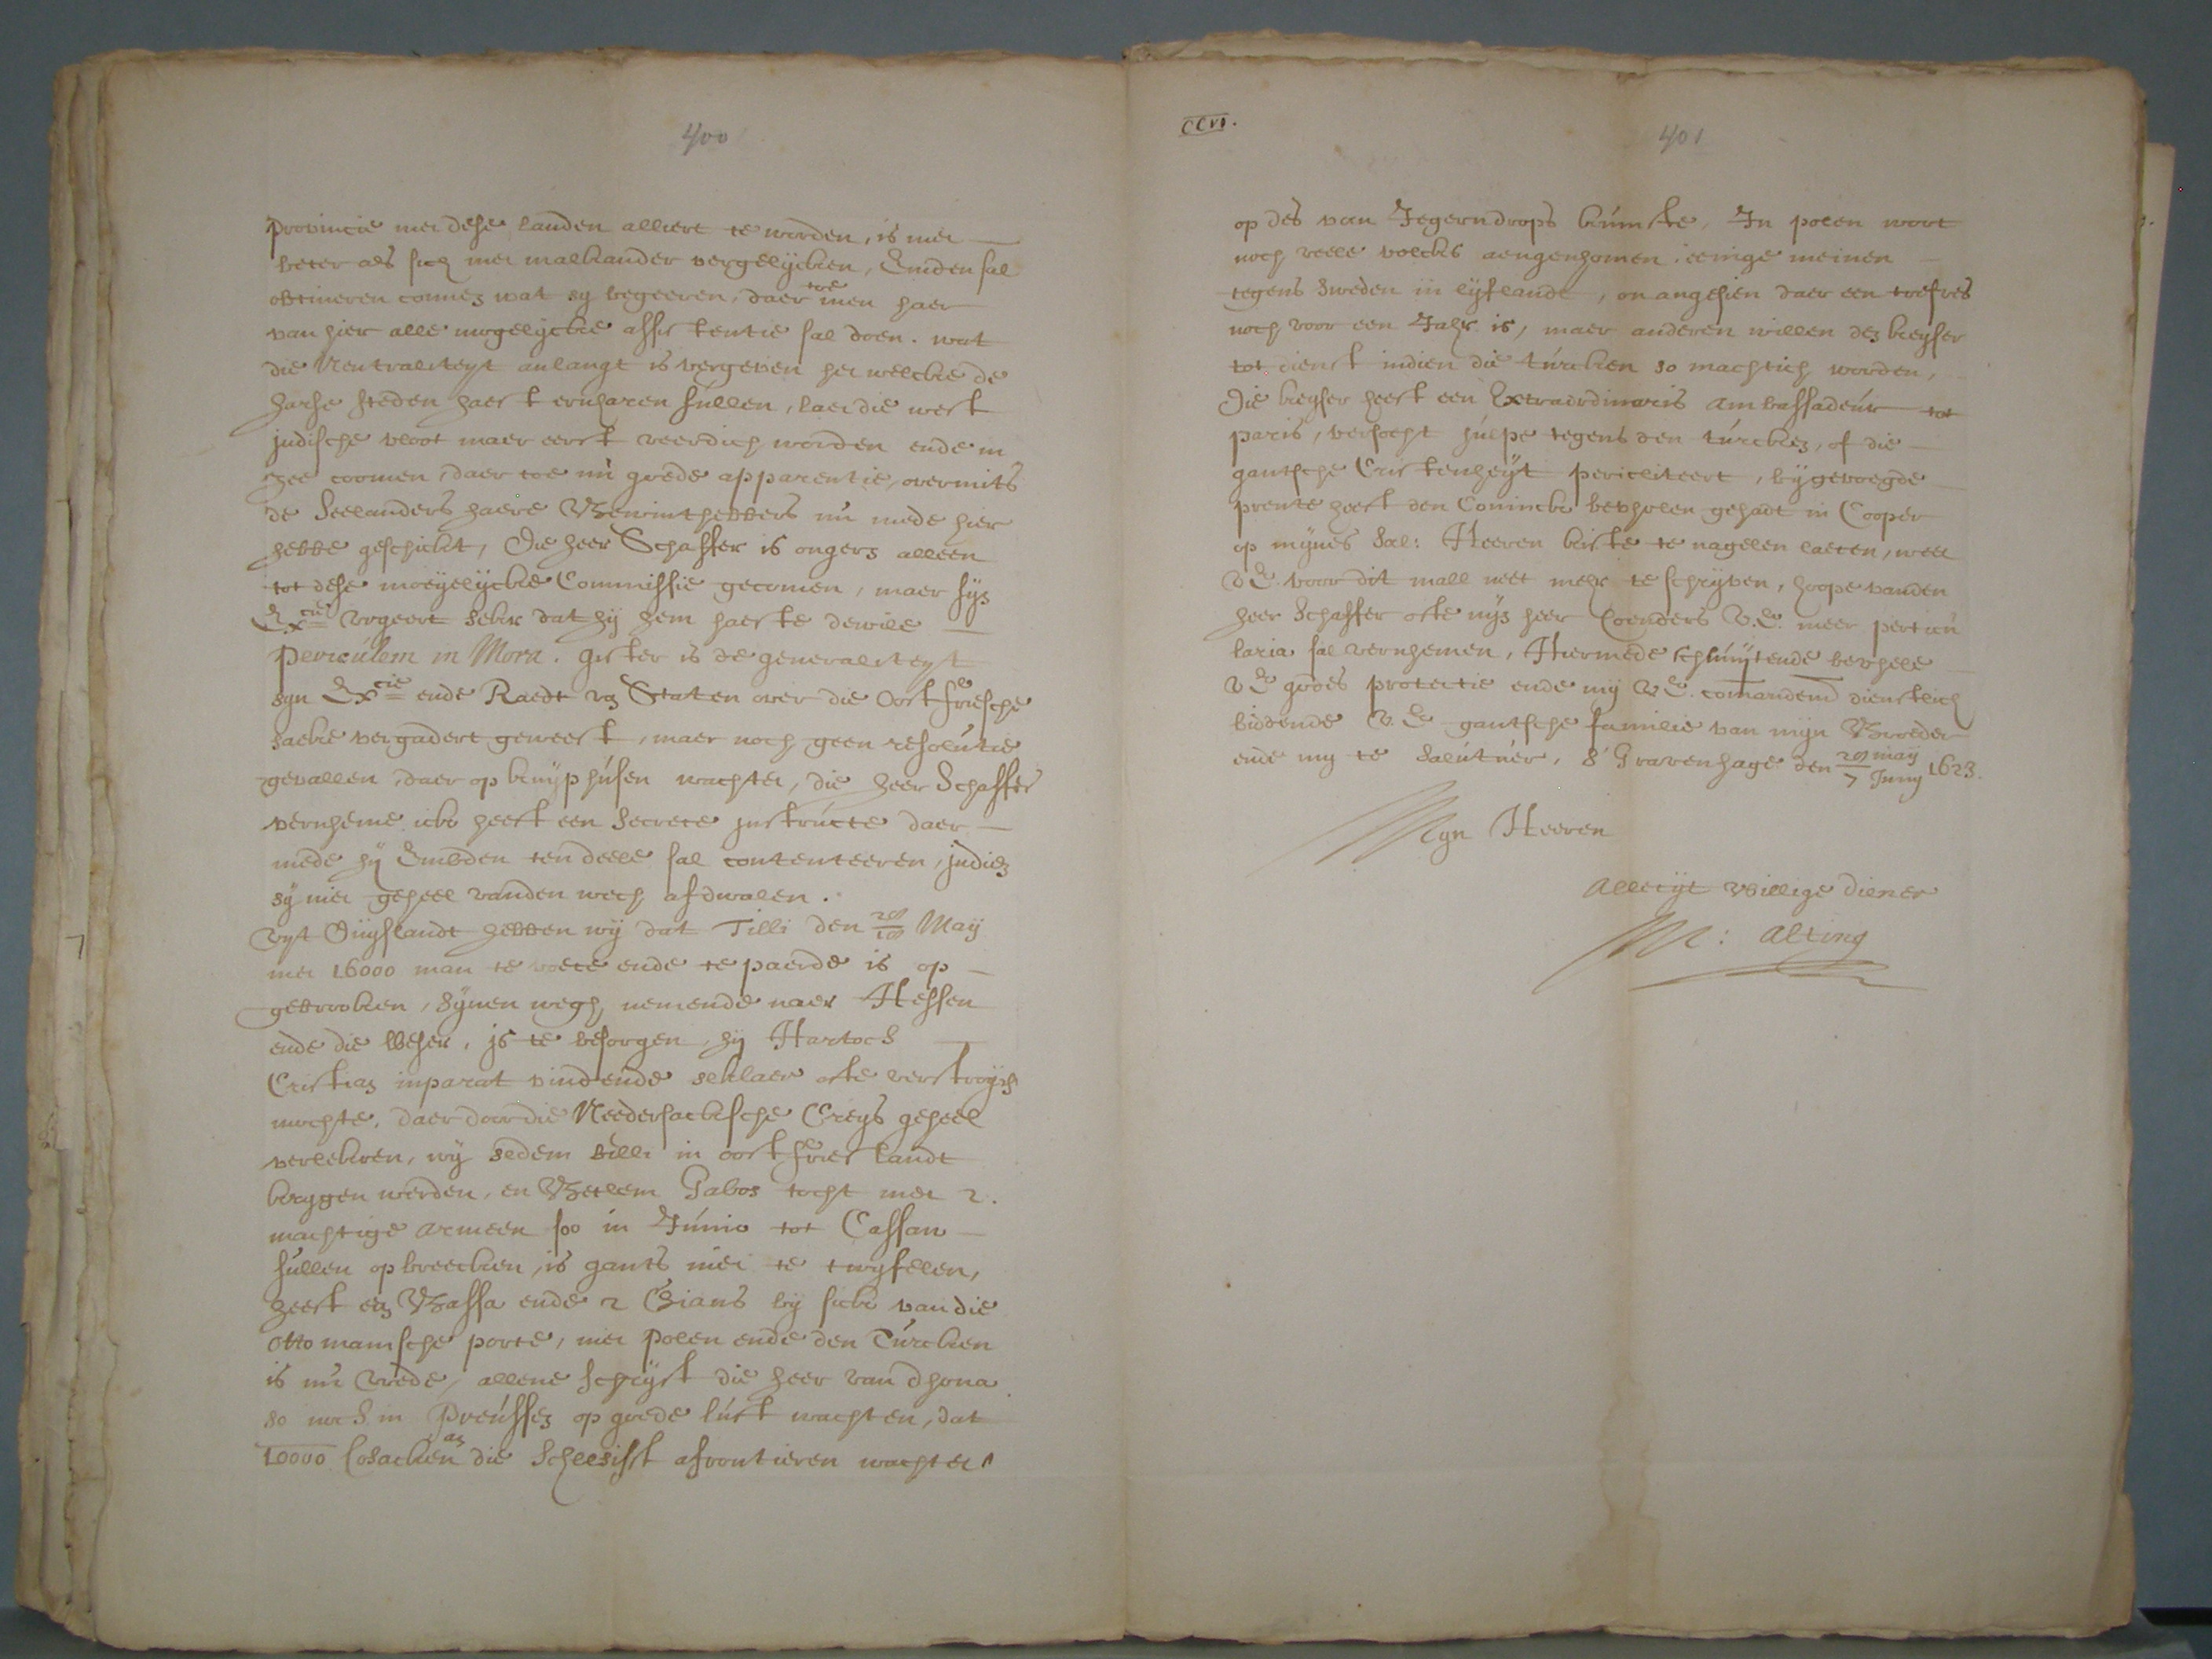 400
provincie met dese landen alliert te worden, is niet
beter als sich met malkander vergelycken, Emden sal
obtineren connen wat sy begeeren, daer toe men haer
van hier alle mogelycke assistentie sal doen. wat
die Neutraliteyt anlangt is vergeven het welcke de
hanse steden haest ervharen sullen, laet die west
indische vloot maer eerst veerdich worden ende in
zee coomen, daer toe nu goede apparentie, overmits
de Seelanders haere Bewinthebbers nu mede hier
hebbe geschickt, Die heer Schaffer is ongern alleen
tot dese moeyelycke Commissie gecomen, maer syn
Excie urgeert seker dat hy hem haeste dewile
periculem in Mora. gister is de generaliteyt
syn Excie ende Raedt van Staten over die Oostfriesche
saeke vergadert geweest, maer noch geen resolutie
gevallen, daer op kuyphusen wachtet, die heer Schaffer
vernheme ick heeft een secrete instructie daer
mede hy Embden ten deele sal contenteeren, indien
sy niet geheel vanden wech afdwalen.
Uyt Duyslandt hebben wy dat Tilli den 20/10 May
met 16000 man te voete ende te paerde is op
gebrooken, synen wegh nemende naer Hessen
ende die Weser, is te besorgen, hy Hartoch
Cristian inparat vindende selver ofte verstroyen
mochte, daer door die Nedersacksche Creys geheel
verlooren, wy sedem Tilli in oostfrieslandt
kryggen werden, en Betlem Gabos tocht met 2.
machtige armeen soo in Junio tot Cassau
sullen opbreecken, is gants niet te twyfelen,
heeft een Bassa ende 2 Chians by sick van die
Ottomanische porte, met Polen ende den Turcken
is nu vrede, allene schryft die heer van Dhona
so noch in Preussen op goede lust wachten, dat
10000 Cosacken an die Schlesische frontieren wachten
CCVI.
401
op des van Jegerndrops kumste, In polen wort
noch veele volcks aengenhomen, eenige meinen
tegens Sweden in lyflande, onangesien daer een trefves
noch voor een Jahr is, maer anderen willen den keyser
tot dienst indien die turcken so machtich worden,
Die keyser heeft een Extraordinaris Ambassadeur tot
paris, versocht hulpe tegens den turcken, of die
gantsche Cristenheyt pericliteert, bygevoegde
prente heeft den Conincke bevholen gehadt in Cooper
op mynes Sal: Heeren kiste te nagelen laeten, weet
V E. voor dit mall niet mehr te schryven, hoope vanden
heer Schaffer ofte myn heer Coenders V.E. meer particu
laria sal vernhemen, Hiermede schluytende bevhele
V E godes protectie ende my V E. comandem dienstlich
biddende V E gantsche familie van myn Broeder
ende my te salutuer, s'Gravenhage den 28 may/7 Juny 1623.
Myn Heeren
Alletyt willige diener
M: Alting